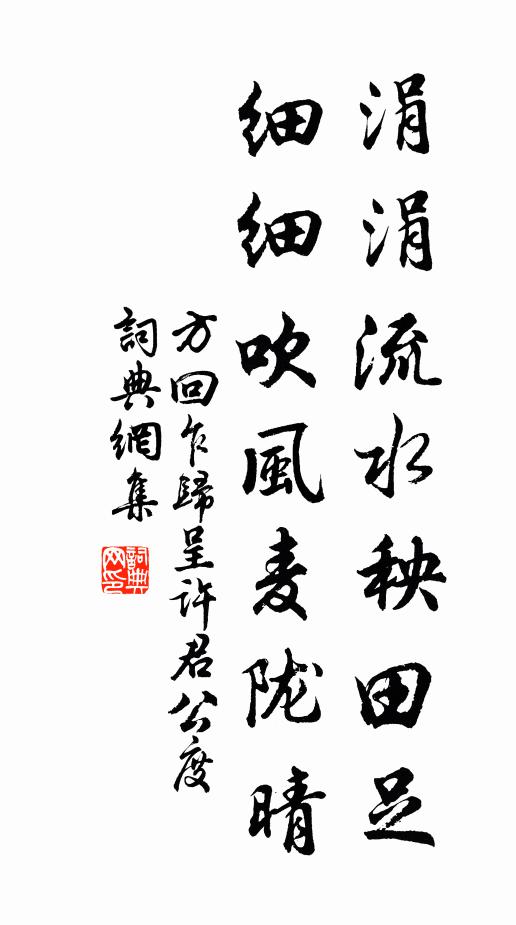 涓涓流水秧田足
细细吹風麦陇晴
方回乍歸呈许君公度
詞典網集
詞典網印